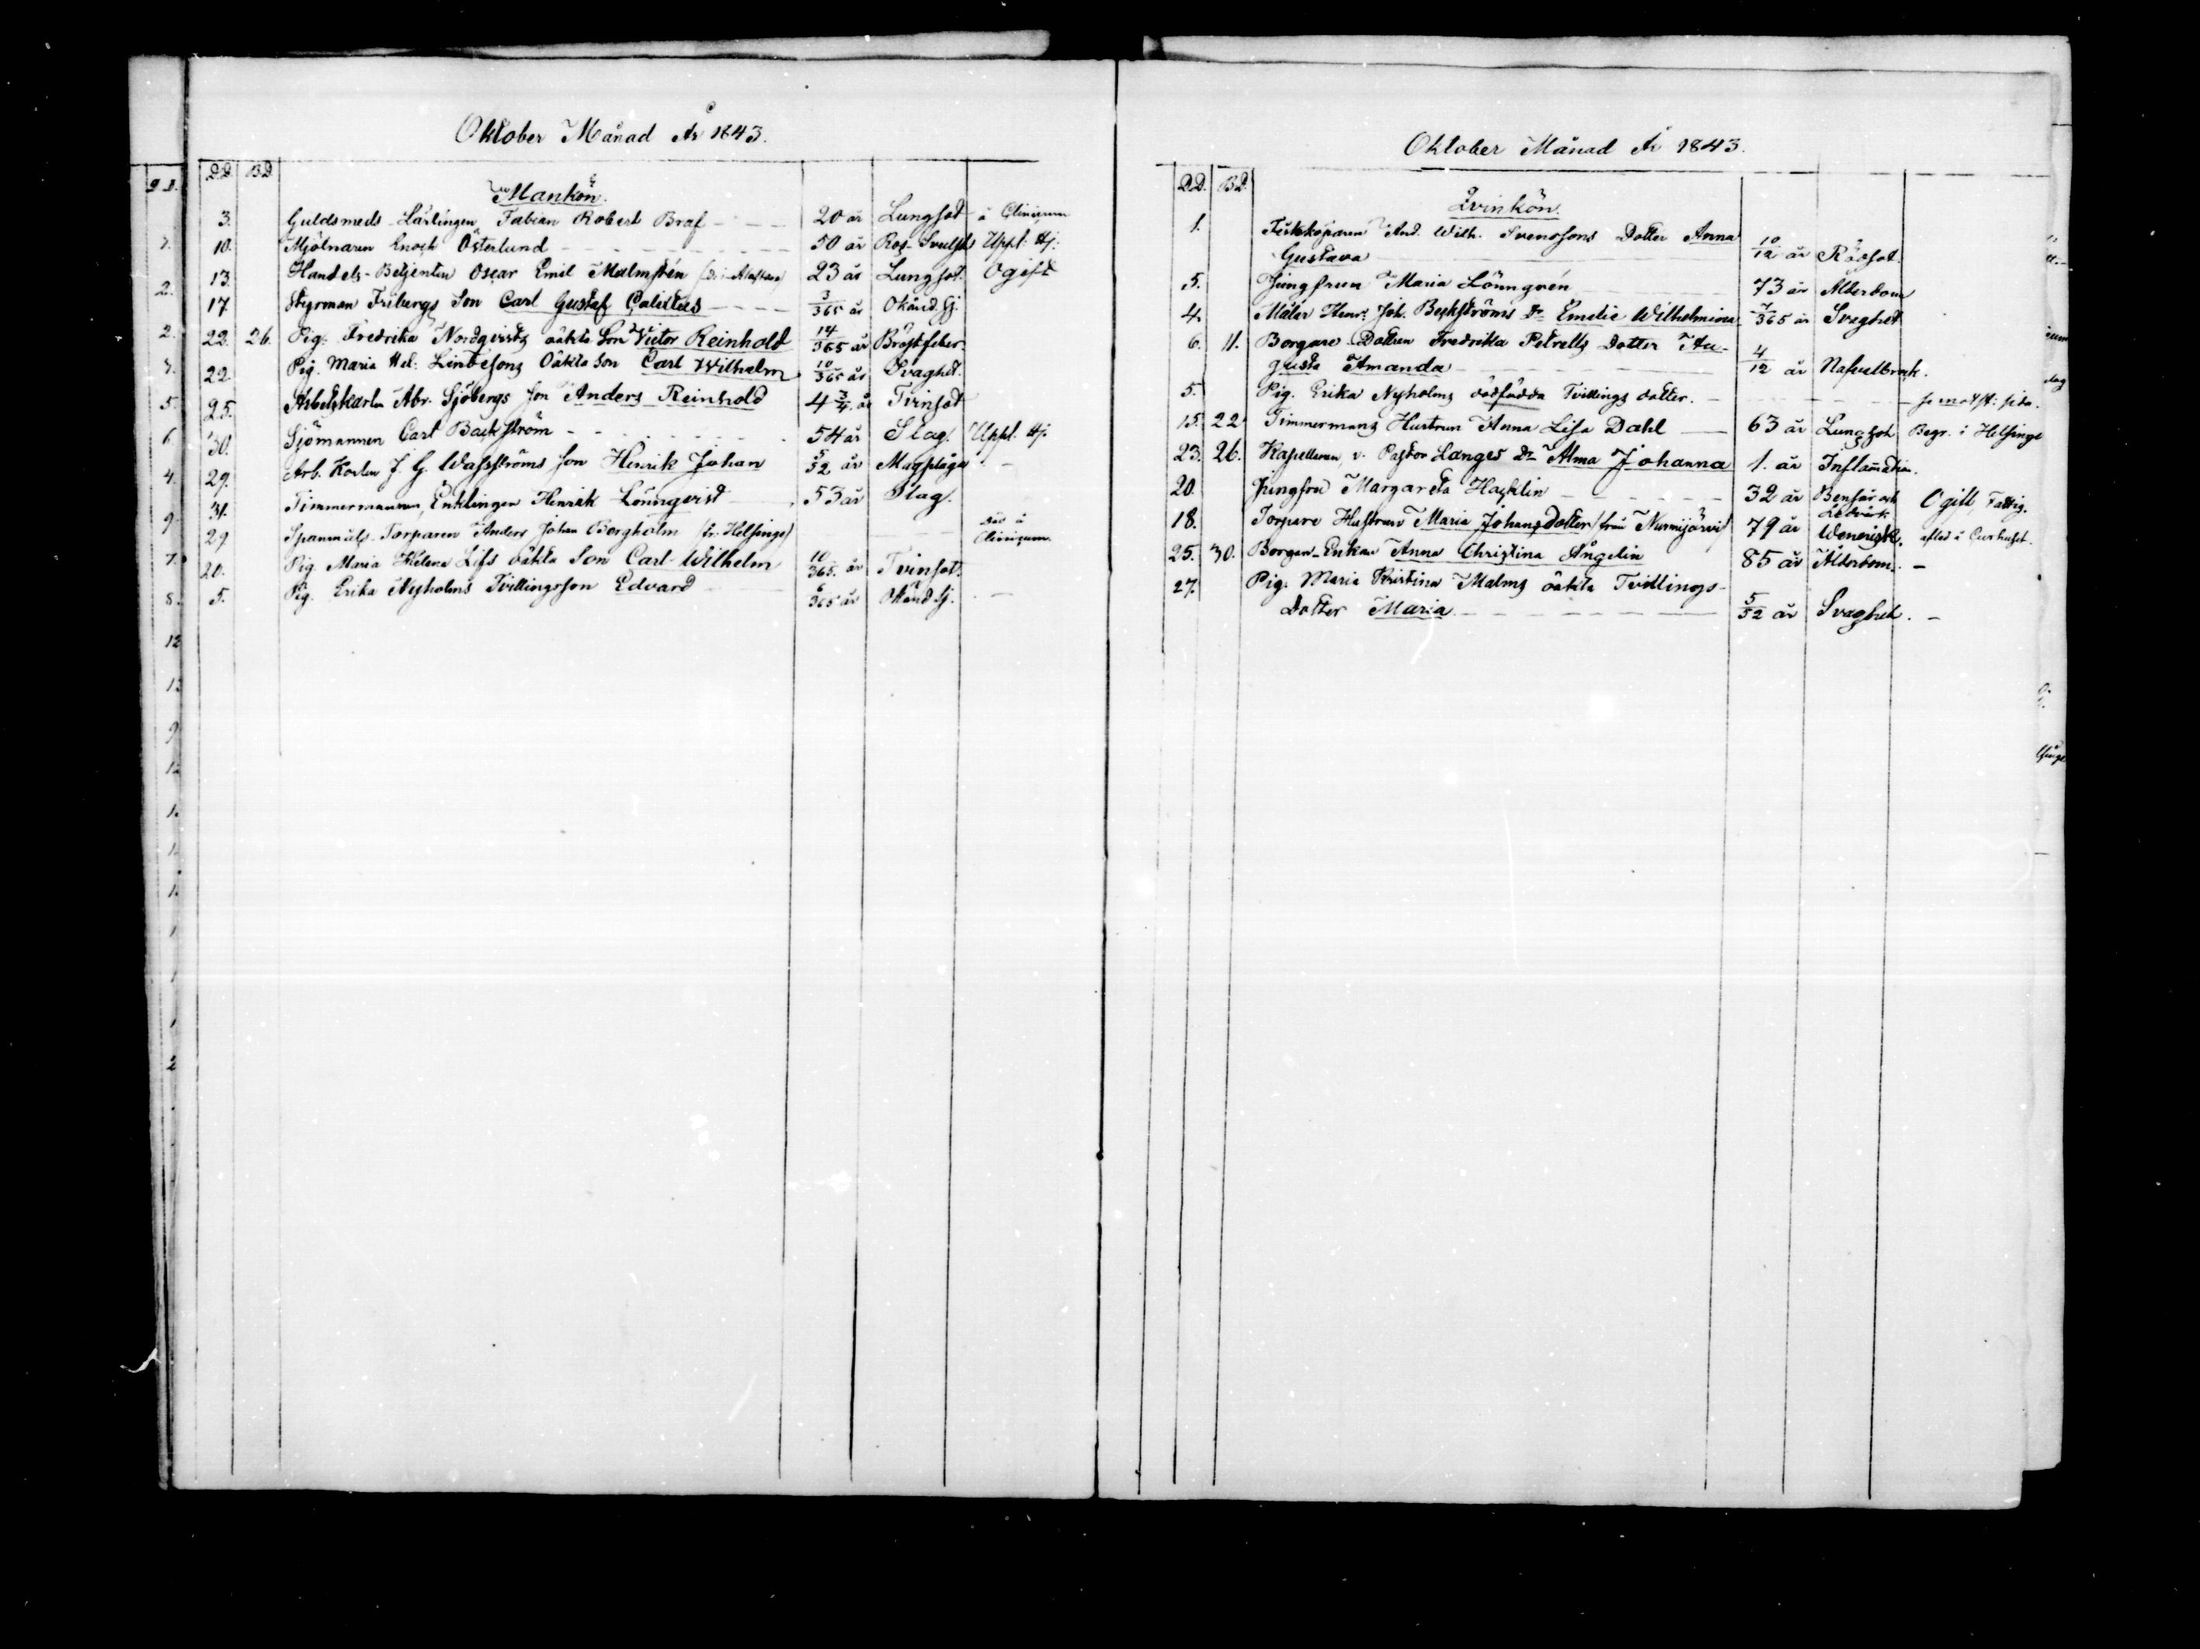 Oktober Månad År 1843.
D.D. B.D.
Mankön.
3. Guldsmeds Lärlingen Fabian Robert Braf - - - 20 år Lungsot å Clinicum
10. Mjölnaren Enoch Österlund - - - - 50 år Ros- Uppl. Hj.
13. Handels-Betjenten Oscar Emil Malmstén 23 år Lungsot. Ogift
17. Styrman Fribergs Son Carl Gustaf 3/365 år Okänd Sj.
22. 26. Pig. Fredrika Nordqvists oäkta Son Victor Reinhold 14/365 år Bröstfeber
22. Pig. Maria Hel. oäkta Son Carl Wilhelm 10/365 år Svaghet.
25. Arbetskarlen Abr. Sjöbergs Son Anders Reinhold 4 3/4 år
30. Sjömannen Carl Backström - - - - 54 år Slag. Uppl. Hj.
29. Arb. Karlen J. G. Wassströms Son Henrik Johan 5/52 år Magplåga - -
31. Timmermannen, Enklingen Henrik Lönnqvist 53 år Slag.
29. Torparen Anders Johan Borgholm (fr. Helsinge) - Död å Clinicum.
20. Pig. Maria Helena oäkta Son Carl Wilhelm 10/365. år
5. Pig. Erika Nyholms Tvillingsson Edvard - - 6/365 år Okänd Sj. - -
Oktober Månad År 1843.
D.D. B.D.
Qvinkön.
1. Fiskköparen And. Wilh. Svenssons Dotter Anna
Gustava - - - 10/12 år Rödsot
5. Jungfrun Maria Lönngrén - - 73 år Ålderdom
4. Målar Henr. Joh. Beckströms Dr Emelie Wilhelmina 7/365 år Svaghet
6. 11. Borgare Dottren Fredrika Petrells Dotter Au-
gusta Amanda - - - 4/12 år Nafvelbrok.
5. Pig. Erika Nyholms dödfödda Tvillings dotter. - - - - se motst: sida.
15. 22. Timmermans Hustrun Anna Lisa Dahl - 63 år Lungsot Begr. i Helsinge
23. 26. Kapellanen, v. Pastor Langes Dr Alma Johanna 1. år Inflamation.
20. Jungfru Margareta Hacklin - - - - 32 år Benfår och Ledvärk Ogift Fattig.
18. Torpare Hustrun Maria Johansdotter (från Nurmijärvi) 79 år Venerisk. afled å Curhuset.
25. 30. Borgar-Enkan Anna Christina Ångelin 85 år Ålderdom. -
27. Pig. Maria Kristina Malms oäkta Tvillings-
Dotter Maria - - - - 5/52 år Svaghet. -